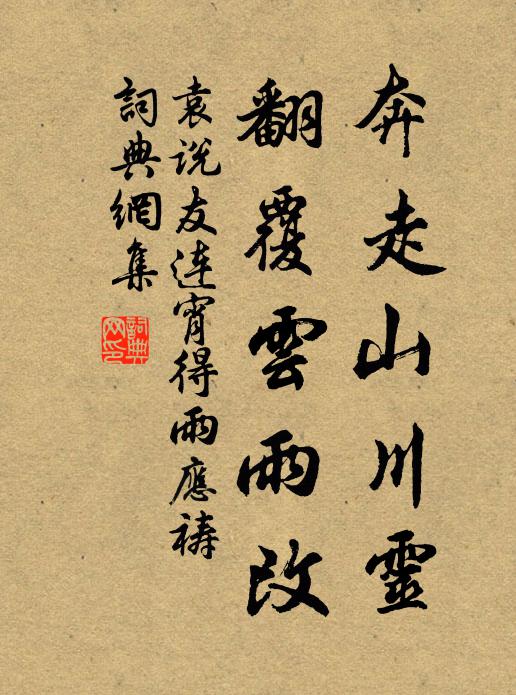 奔走山川靈
翻覆雲雨改
袁説友連宵得雨應禱
詞典網集
詞典网印